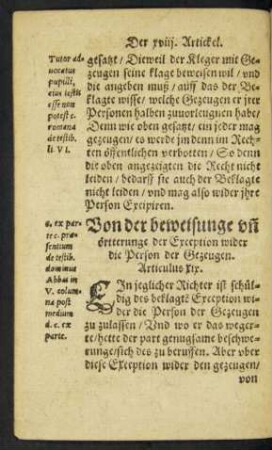 Der xviij. Artickel.
Tutor ad-
uocatus
pupilli,
eius testis
esse non
potest c.
romana
de testib.
li VI.
gesatzt / Dieweil der Kleger mit Ge-
zeugen seine klage beweisen wil / vnd
die angeben muß / auff das der Be-
klagte wisse / welche Gezeugen er jrer
Personen halben zuuorleugnen habe /
Denn wie oben gesatzt / ein jeder mag
gezeugen / es werde jm denn im Rech-
ten öffentlichen verbotten / So denn
die oben angezeigten die Recht nicht
leiden / bedarff sie auch der Beklagte
nicht leiden / vnd mag also wider jhre
Person Excipiren.
c. ex par-
te c. præ-
sentium
de testib.
dominus
Abbas in
V. colum-
na post
medium
d. c. ex
parte.
Von der beweisunge vñ
örtterunge der Exception wider
die Person der Gezeugen.
Articulus xix.
EIn jeglicher Richter ist schül-
dig des beklagtē Exception wi-
der die Person der Gezeugen
zu zulassen / Vnd wo er das wege-
re / hette der part gnugsame beschwe-
runge / sich des zu beruffen. Aber vber
diese Exception wider den gezeugen /
von